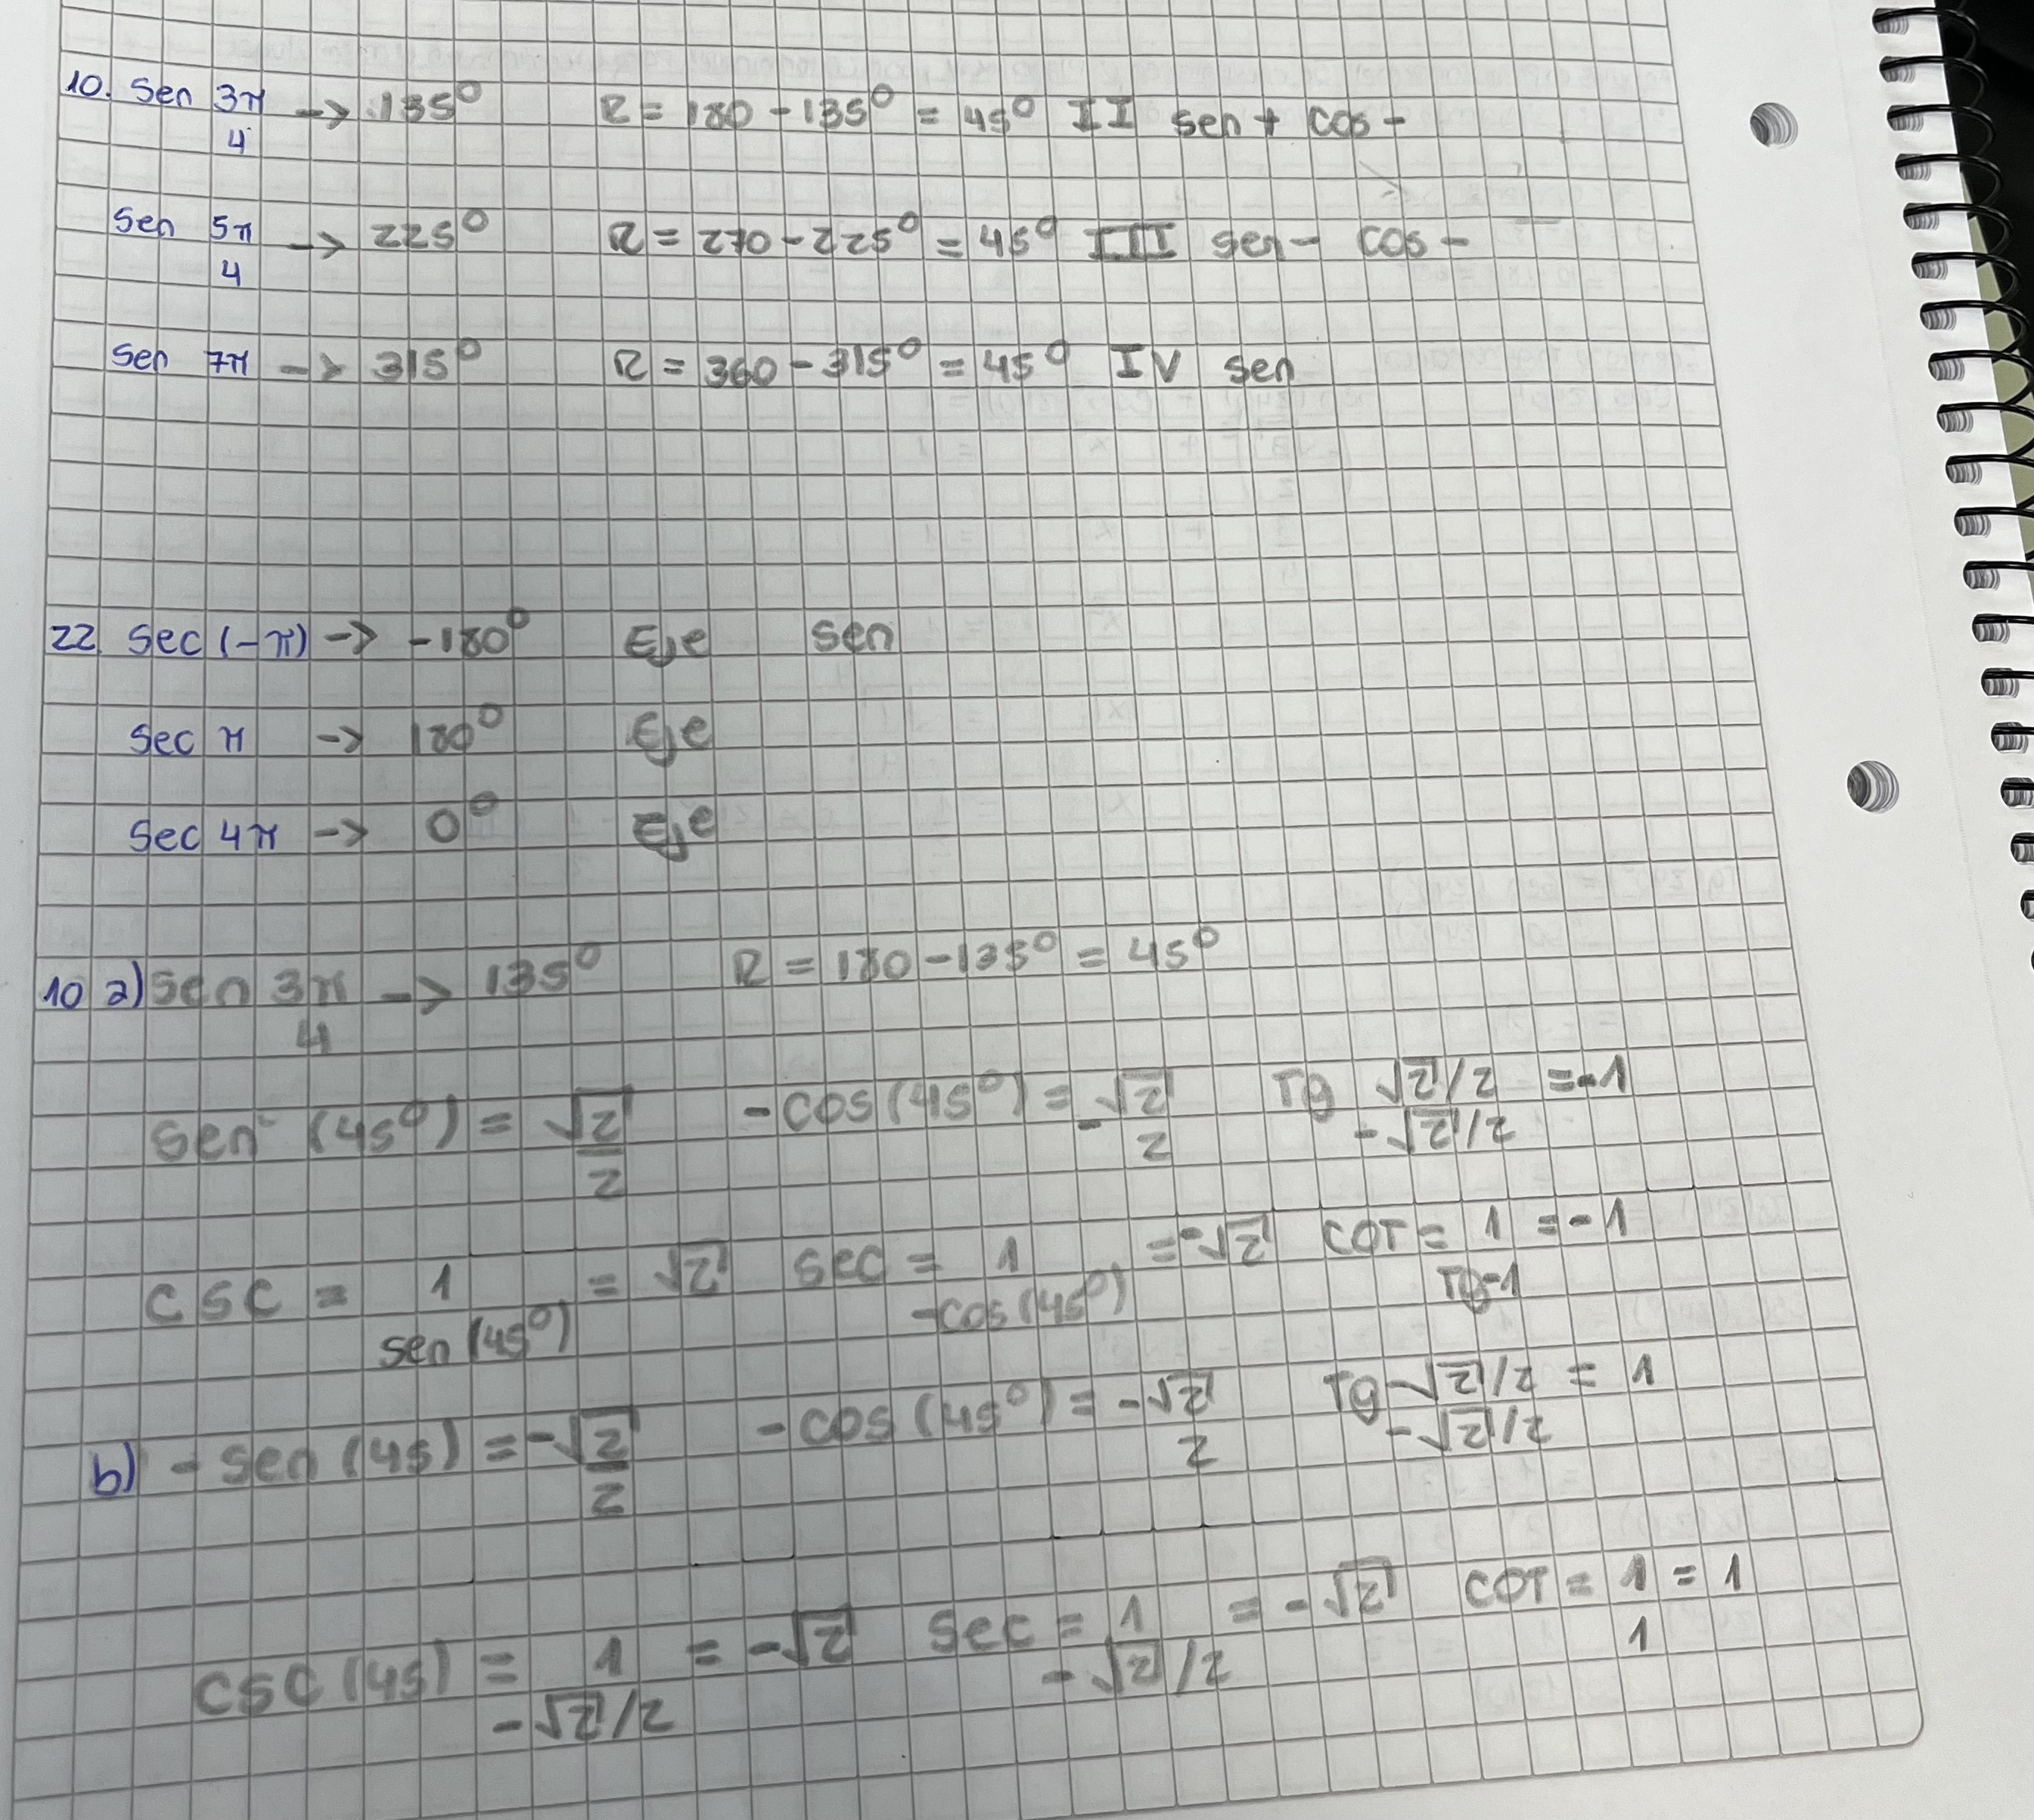 10. sen 3π/4 -> 135° R = 180 - 135° = 45° II sen + cos -
sen 5π/4 -> 225° R = 270 - 225° = 45° III sen - cos -
sen 7π -> 315° R = 360 - 315° = 45° IV sen
22 sec (-π) -> -180° Eje sen
sec π -> 180° Eje
sec 4π -> 0° Eje
10 a) sen 3π/4 -> 135° R = 180 - 135° = 45°
sen (45°) = √2/2 - cos (45°) = - √2/2 Tg √2/2 / - √2/2 = -1
csc = 1/sen (45°) = √2 sec = 1/-cos (45°) = -√2 COT = 1/Tg-1 = -1
b) - sen (45) = -√2/2 - cos (45°) = -√2/2 Tg -√2/2 / -√2/2 = 1
csc (45) = 1/-√2/2 = -√2 sec = 1/-√2/2 = -√2 COT = 1/1 = 1